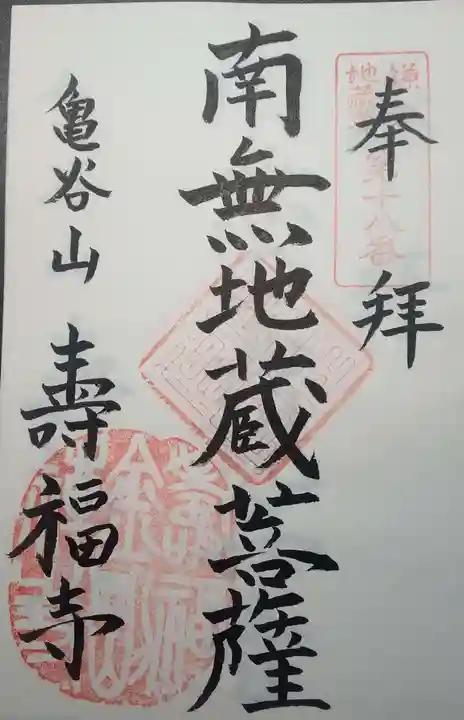 奉拝
第十八番
南無地蔵菩薩
亀谷山
壽福寺